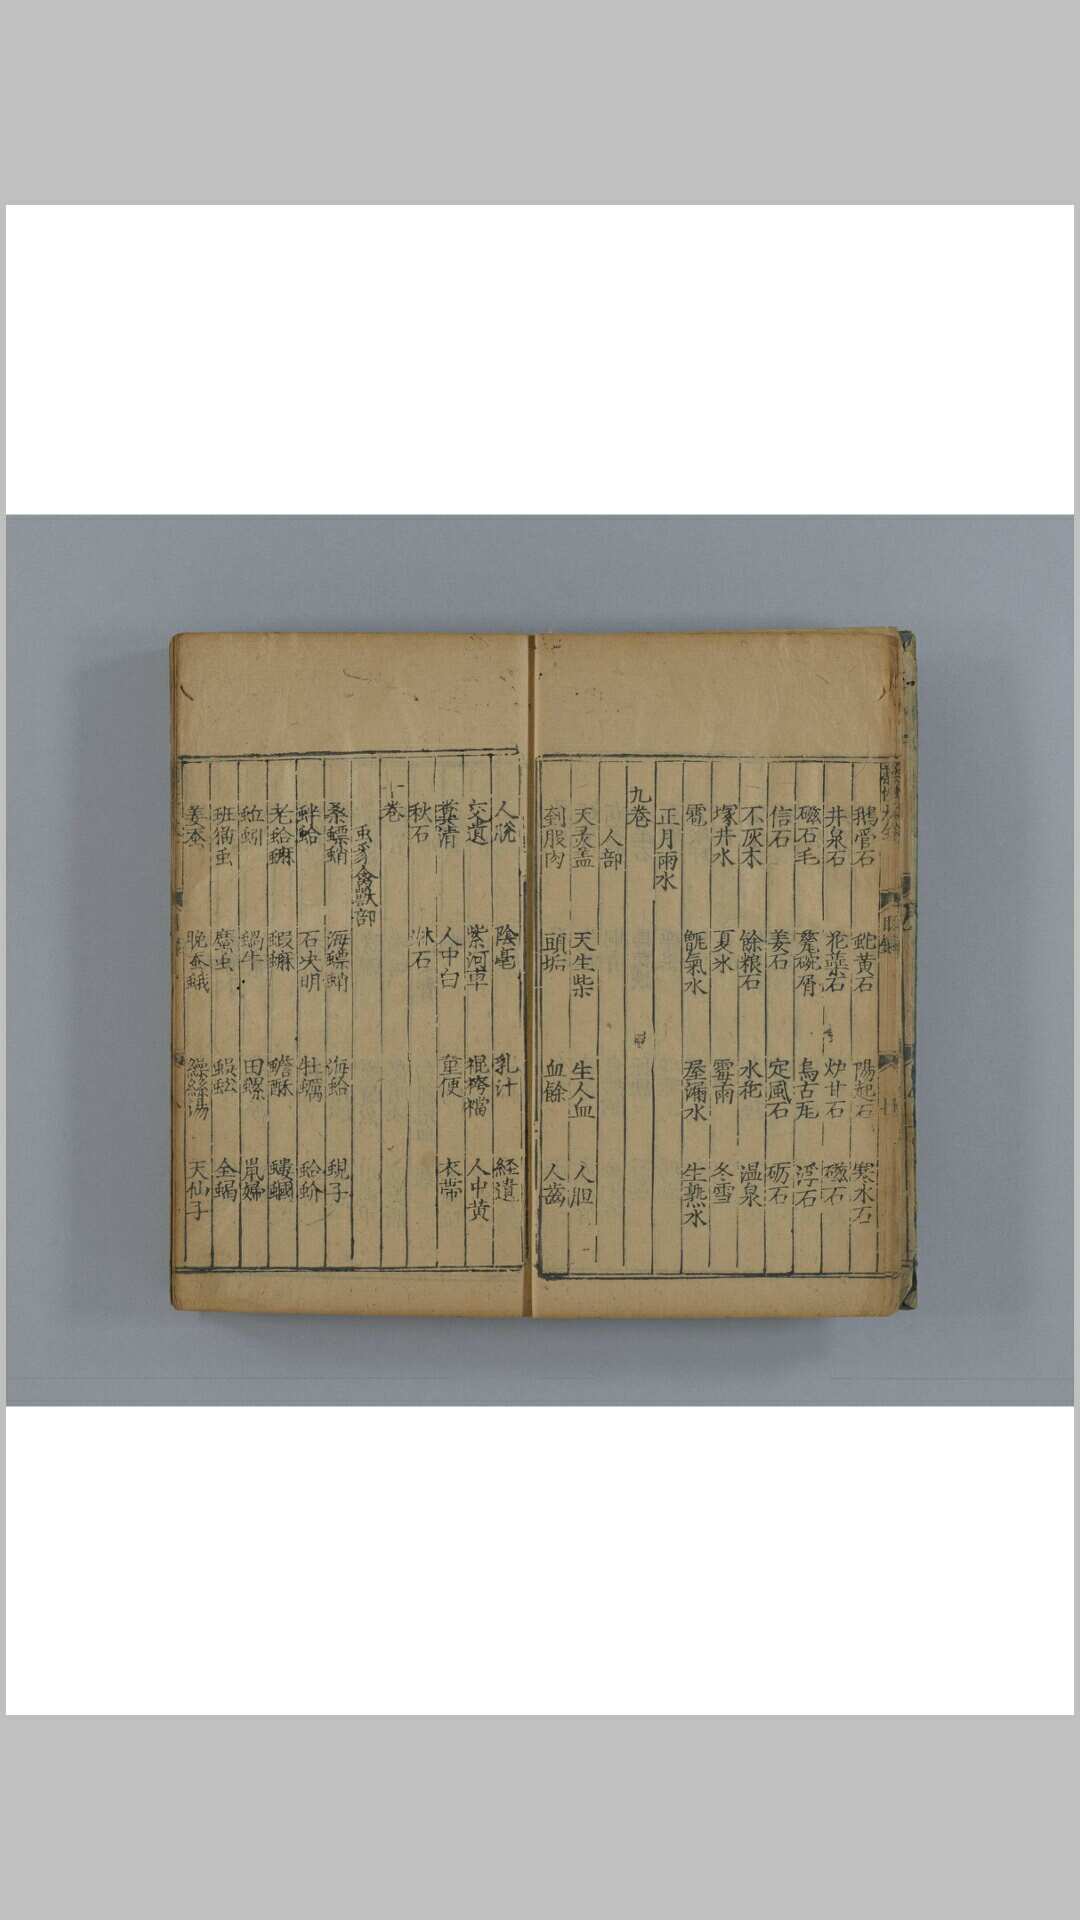 鵝管石 蛇黃石 陽起石 寒水石
井泉石 花蘂石 炉甘石 磁石
磁石毛 甆碗屑 烏古瓦 浮石
信石 姜石 定風石 砺石
不灰木 餘粮石 水花 温泉
塚井水 夏氷 霉雨 冬雪
雹 甑氣水 屋漏水 生熟水
正月雨水
九卷
人部
天灵盖 天生柴 生人血 人胆
刲股肉 頭垢 血餘 人齒
人脫 陰毫 乳汁 経遺
交遺 紫河車 裩袴襠 人中黄
糞清 人中白 童便 衣帯
秋石 淋石
卷
虫豸禽獸部
桑螵蛸 海螵蛸 海蛤 蜆子
蚌蛤 石决明 牡蠣 蛤蚧
老蛤蟆 蝦蟆 蟾酥 螻蟈
蚯蚓 蝸牛 田螺 鼠婦
班猫虫 䗪虫 蜈蚣 全蝎
姜蚕 晚蚕蛾 繰絲湯 天仙子